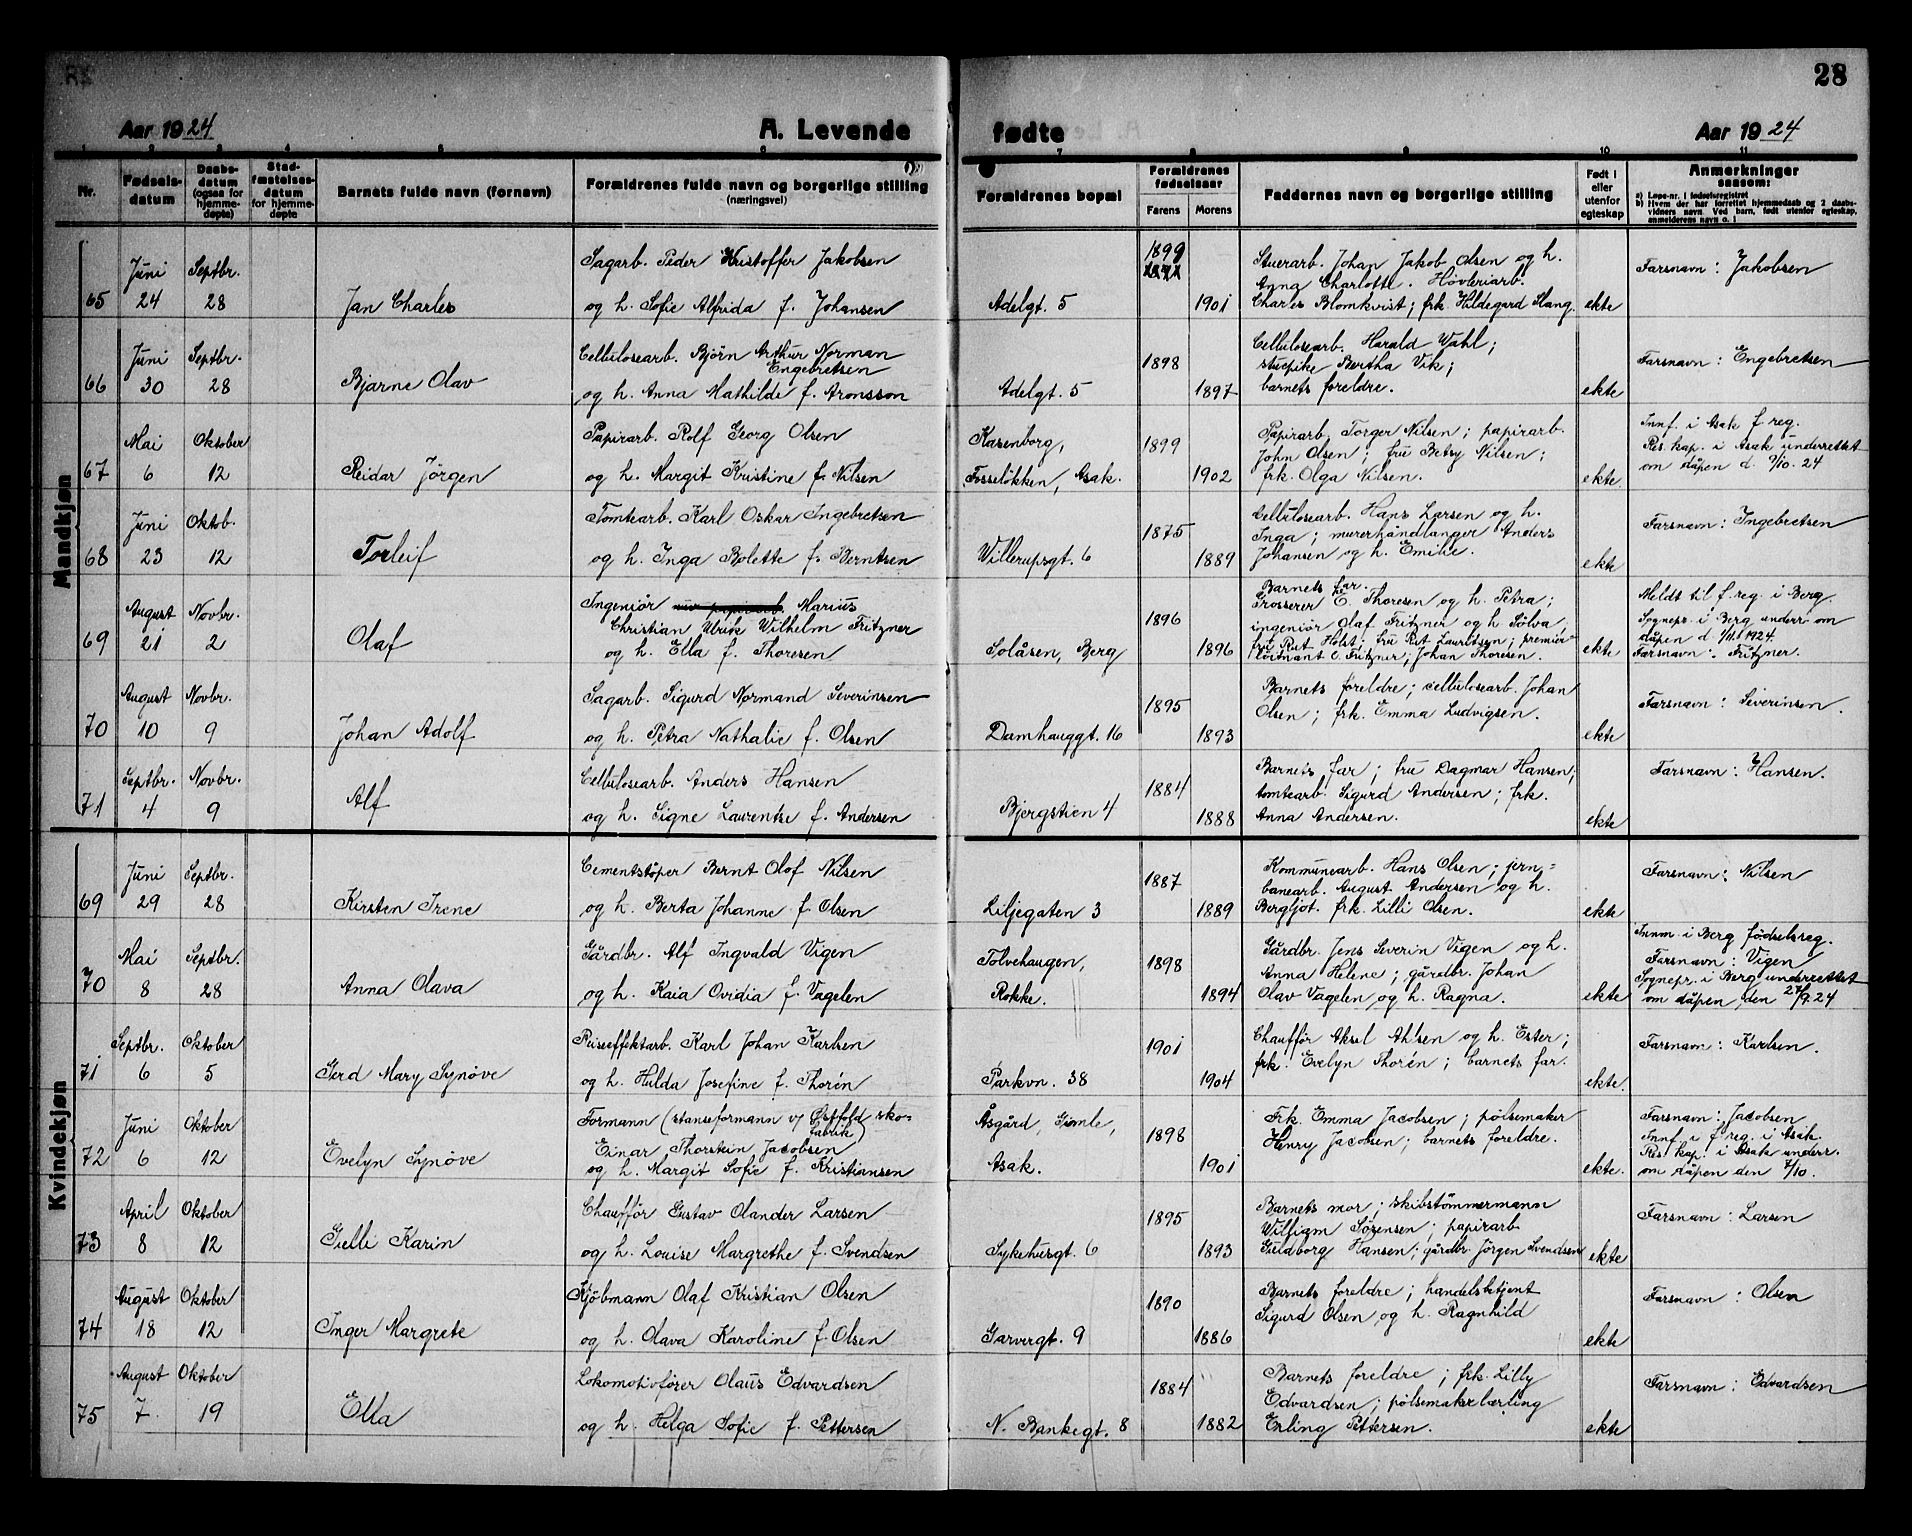 28
Aar 1924 A. Levende fødte Aar 1924
1 2 3 4 5 6 7 8 9 10 11
Nr. Fødsels-datum Daabs-datum (ogsaa for hjemme-døpte) Stad-fæstelses-datum for hjemme-døpte Barnets fulde navn (fornavn) Forældrenes fulde navn og borgerlige stilling (næringsvei) Forældrenes bopæl Forældrenes fødselsaar Farens Morens Faddernes navn og borgerlige stilling Født i eller utenfor egteskap Anmerkninger saasom:
a) Løpe-nr. i fødselsregistret
b) Hvem der har forrettet hjemmedaab og 2 daabs-
vidners navn. Ved barn, født utenfor egteskap,
anmelderens navn o. l
Mandkjøn
65 Juni 24 Septbr. 28 Jan Charles
Sagarb. Peder Kristoffer Jakobsen
og h. Sofie Alfrida f. Johansen
Adelgt. 5 1899 1901
Stuerarb. Johan Jakob Olsen og h.
Anna Charlotte. Høvleriarb.
Charles Blomkvist; frk. Hildegard Slang.
ekte Farsnavn: Jakobsen
66 Juni 30 Septbr. 28 Bjarne Olav
Cellulosearb. Bjørn Arthur Norman
Engebretsen
og h. Anna Mathilde f. Aronsson
Adelgt. 5 1898 1897
Cellulosearb. Harald Wahl;
stuepike Bertha Vik;
barnets foreldre.
ekte Farsnavn: Engebretsen
67 Mai 6 Oktober 12 Reidar Jørgen
Papirarb. Rolf Georg Olsen
og h. Margit Kristine f. Nilsen
Karenborg,
Fosseløkken, Asak. 1899 1902
Papirarb. Torger Nilsen; papirarb.
John Olsen; fru Betsy Nilsen;
frk. Olga Nilsen.
ekte. Innf. i Asak f. reg.
Res. kap. i Asak underrettet
om dåpen d. 9/10. 24
68 Juni 23 Oktob. 12 Torleif
Tomtearb. Karl Oskar Ingebretsen
og h. Inga Bolette f. Berntsen
Willerupsgt. 6 1875 1889
Cellulosearb. Hans Larsen og h.
Inga; murerhåndlanger Anders
Johansen og h. Emilie.
ekte Farsnavn: Ingebretsen
69 August 21 Novbr. 2 Olaf
Ingeniør Marius
Christian Ulrik Wilhelm Fritzner
og h. Ella f. Thoresen
Solåsen, Berg 1896 1896
Barnets far.
Grosserer E. Thoresen og h. Petra;
ingeniør Olaf Fritzner og h. Sølva;
fru Rut Holst; fru Rut Lauritsyn; premier-
løitnant C. Fritzner; Johan Thoresen.
ekte Meldt til f. reg. i Berg.
Sognepr. i Berg underr. om
dåpen d. 1/11 1924.
Farsnavn: Fritzner.
70 August 10 Novbr. 9 Johan Adolf
Sagarb. Sigurd Normand Severinsen
og h. Petra Nathalie f. Olsen
Damhauggt. 16 1895 1893
Barnets foreldre; cellulosearb. Johan
Olsen; frk. Emma Ludvigsen.
ekte Farsnavn: Severinsen.
71 Septbr. 4 Novbr. 9 Alf
Cellulosearb. Anders Hansen
og h. Signe Laurentse f. Andersen
Bjergstien 4 1884 1888
Barnets far; fru Dagmar Hansen;
tomtearb. Sigurd Andersen; frk.
Anna Andersen.
ekte Farsnavn: Hansen.
Kvindekjøn
69 Juni 29 Septbr. 28 Kirsten Irene
Cementstøper Bernt Olof Nilsen
og h. Berta Johanne f. Olsen
Liljegaten 3 1887 1889
Kommunearb. Hans Olsen; jern=
banearb. August Andersen og h.
Bergljot. frk. Lilli Olsen.
ekte Farsnavn: Nilsen
70 Mai 8 Septbr. 28 Anna Olava
Gårdbr. Alf Ingvald Vigen
og h. Kaia Ovidia f. Vagelen
Tolvehaugen,
Rokke. 1898 1894
Gårdbr. Jens Severin Vigen og h.
Anna Helene; gårdbr. Johan
Olav Vagelen og h. Ragna.
ekte Innm. i Berg fødselsreg.
Farsnavn: Vigen
Sognepr. i Berg underrettet
om dåpen den 27/9. 24
71 Septbr. 6 Oktober 5 Gerd Mary Synøve
Reiseeffektarb. Karl Johan Karlsen
og h. Hulda Josefine f. Thorén
Parkvn. 38 1901 1904
Chauffør Aksel Ahlsen og h. Ester;
frk. Evelyn Thorén; barnets far.
ekte. Farsnavn: Karlsen.
72 Juni 6 Oktober 12 Evelyn Synøve
Formann (stanseformann v/ Østfold sko-
fabrik)
Einar Thorstein Jacobsen
og h. Margit Sofie f. Kristiansen
Åsgård, Gimle,
Asak. 1898 1901
Frk. Emma Jacobsen; pølsemaker
Henry Jacobsen; barnets foreldre.
ekte. Farsnavn: Jacobsen
Innf. i f. reg. i Asak.
Res. kap. i Asak underr.
om dåpen den 7/10.
73 April 8 Oktober 12 Gelli Karin
Chauffør Gustav Olander Larsen
og h. Louise Margrethe f. Svendsen
Sykehusgt. 6 1895 1893
Barnets mor; skibstømmermann
William Sørensen; papirarb.
Guldborg Hansen; gårdbr. Jørgen Svendsen
ekte Farsnavn: Larsen
74 August 18 Oktober 12 Inger Margrete
Kjøbmann Olaf Kristian Olsen
og h. Olava Karoline f. Olsen
Garvergt. 9 1890 1886
Barnets foreldre; handelsbetjent
Sigurd Olsen og h. Ragnhild
ekte Farsnavn: Olsen
75 August 7. Oktober 19 Ella
Lokomotivfører Olaus Edvardsen
og h. Helga Sofie f. Pettersen
N. Bankegt. 8 1884 1882
Barnets foreldre; frk. Lilly
Edvardsen; pølsemakerlærling
Erling Pettersen.
ekte Farsnavn: Edvardsen